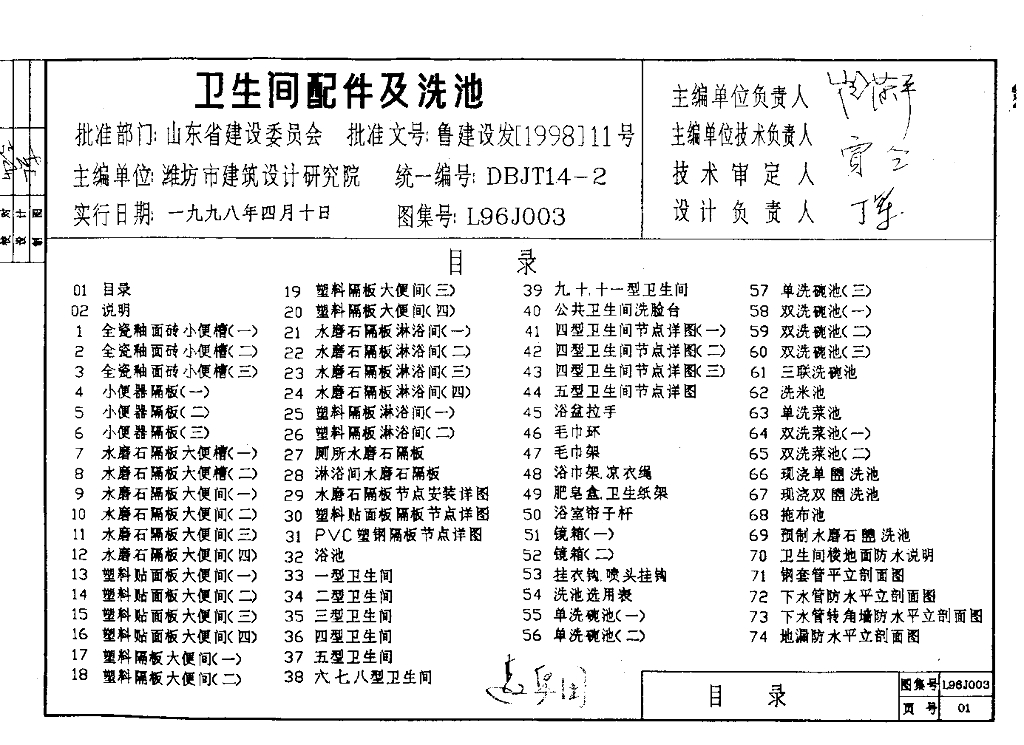 卫生间配件及洗池
批准部门: 山东省建设委员会 批准文号: 鲁建设发[1998]11号
主编单位: 潍坊市建筑设计研究院 统一编号: DBJT14-2
实行日期: 一九九八年四月十日 图集号: L96J003
主编单位负责人
主编单位技术负责人
技术审定人
设计负责人
目 录
01 目录
02 说明
1 全瓷釉面砖小便槽(一)
2 全瓷釉面砖小便槽(二)
3 全瓷釉面砖小便槽(三)
4 小便器隔板(一)
5 小便器隔板(二)
6 小便器隔板(三)
7 水磨石隔板大便槽(一)
8 水磨石隔板大便槽(二)
9 水磨石隔板大便间(一)
10 水磨石隔板大便间(二)
11 水磨石隔板大便间(三)
12 水磨石隔板大便间(四)
13 塑料贴面板大便间(一)
14 塑料贴面板大便间(二)
15 塑料贴面板大便间(三)
16 塑料贴面板大便间(四)
17 塑料隔板大便间(一)
18 塑料隔板大便间(二)
19 塑料隔板大便间(三)
20 塑料隔板大便间(四)
21 水磨石隔板淋浴间(一)
22 水磨石隔板淋浴间(二)
23 水磨石隔板淋浴间(三)
24 水磨石隔板淋浴间(四)
25 塑料隔板淋浴间(一)
26 塑料隔板淋浴间(二)
27 厕所水磨石隔板
28 淋浴间水磨石隔板
29 水磨石隔板节点安装详图
30 塑料贴面板隔板节点详图
31 PVC塑钢隔板节点详图
32 浴池
33 一型卫生间
34 二型卫生间
35 三型卫生间
36 四型卫生间
37 五型卫生间
38 六.七.八型卫生间
39 九.十.十一型卫生间
40 公共卫生间洗脸台
41 四型卫生间节点详图(一)
42 四型卫生间节点详图(二)
43 四型卫生间节点详图(三)
44 五型卫生间节点详图
45 浴盆拉手
46 毛巾环
47 毛巾架
48 浴巾架.凉衣绳
49 肥皂盒.卫生纸架
50 浴室帘子杆
51 镜箱(一)
52 镜箱(二)
53 挂衣钩.喷头挂钩
54 洗池选用表
55 单洗碗池(一)
56 单洗碗池(二)
57 单洗碗池(三)
58 双洗碗池(一)
59 双洗碗池(二)
60 双洗碗池(三)
61 三联洗碗池
62 洗米池
63 单洗菜池
64 双洗菜池(一)
65 双洗菜池(二)
66 现浇单盥洗池
67 现浇双盥洗池
68 拖布池
69 预制水磨石盥洗池
70 卫生间楼地面防水说明
71 钢套管平立剖面图
72 下水管防水平立剖面图
73 下水管转角墙防水平立剖面图
74 地漏防水平立剖面图
目 录
图集号 L96J003
页 号 01